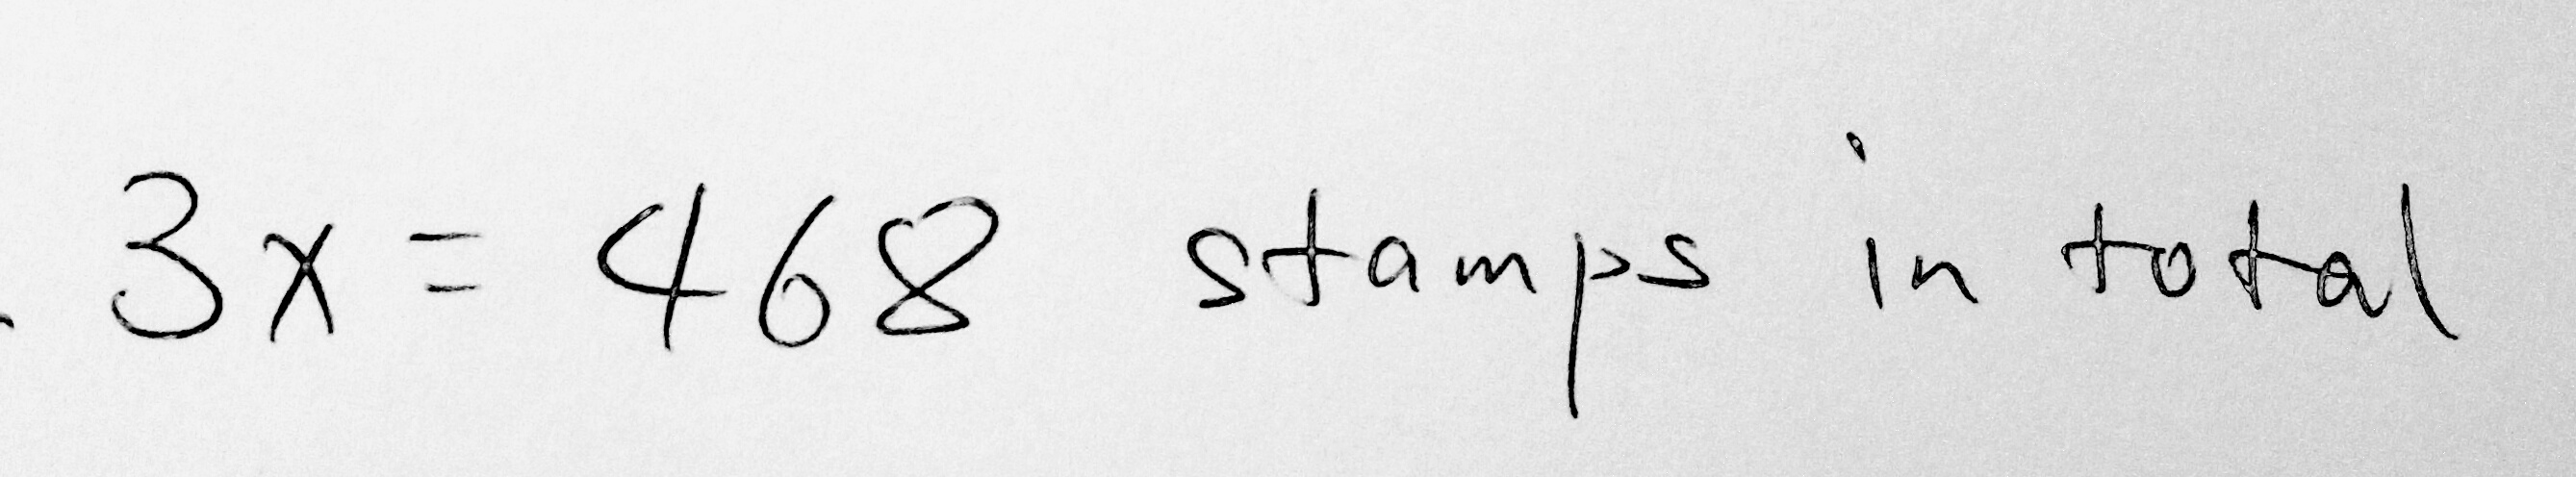 3x = 468 stamps in total